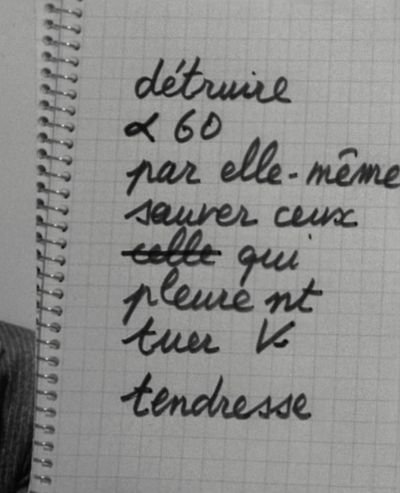 détruire
α 60
par elle-même
sauver ceux
celle qui
pleurent
tuer V
tendresse